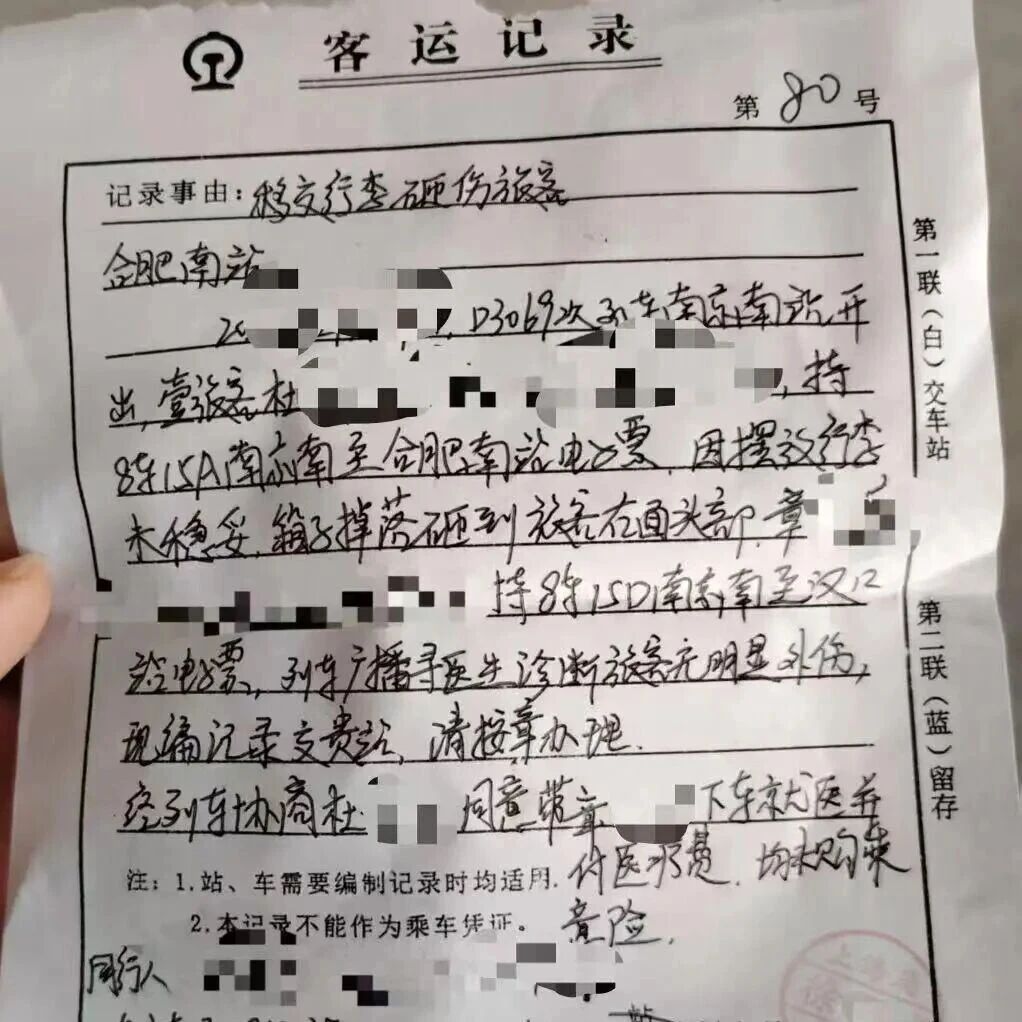 客运记录
第 80 号
记录事由:移交行李砸伤旅客
合肥南站
D3069次列车南京南站开
出,壹旅客杜 ,持
8车15A南京南至合肥南站电子票,因摆放行李
未稳妥,箱子掉落砸到旅客右面头部,章
持8车15D南京南至汉口
站电子票,列车广播寻医生诊断旅客无明显外伤,
现编记录交贵站,请按章办理.
经列车协商杜 同意带章 下车就医并
付医疗费.均未购乘
意险.
注:1.站、车需要编制记录时均适用.
2.本记录不能作为乘车凭证。
同行人
站
第一联(白)交车站
第二联(蓝)留存
上海